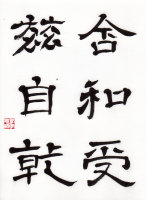 含和受
茲自乾